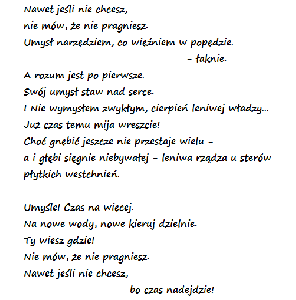 Nawet jeśli nie chcesz,
nie mów, że nie pragniesz.
Umysł narzędziem, co więźniem w popędzie.
- łaknie.
A rozum jest po pierwsze.
Swój umysł staw nad serce.
I Nie wymysłem zwykłym, cierpień leniwej władzy...
Już czas temu mija wreszcie!
Choć gnębić jeszcze nie przestaje wielu -
a i głębi sięgnie niebywałej - leniwa rządza u sterów
płytkich westchnień.
Umyśle! Czas na więcej.
Na nowe wody, nowe kieruj dzielnie.
Ty wiesz gdzie!
Nie mów, że nie pragniesz.
Nawet jeśli nie chcesz,
bo czas nadejdzie!